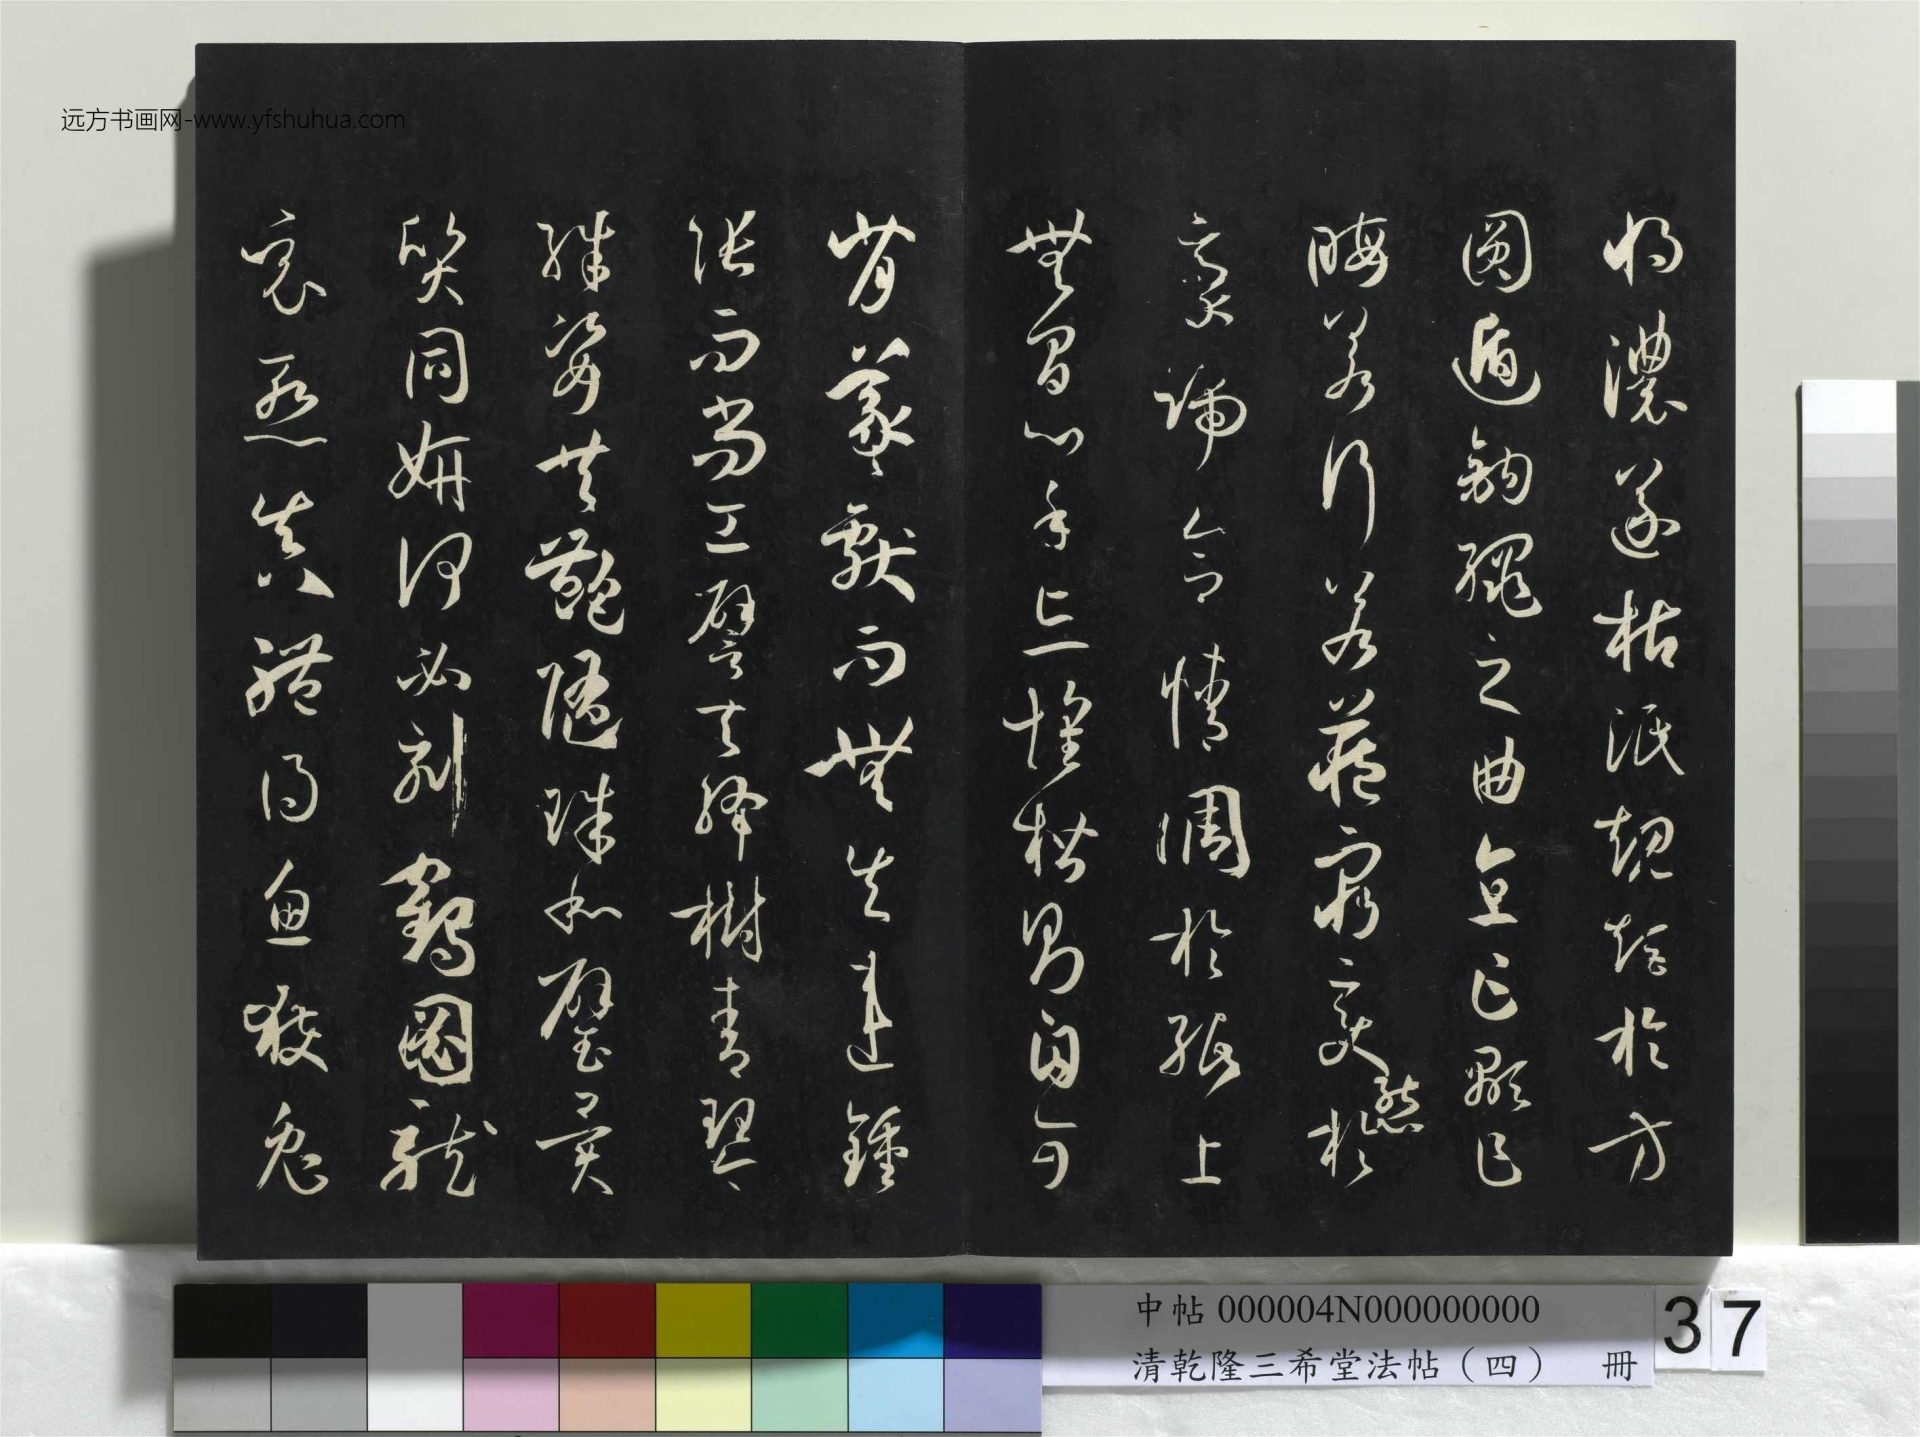 远方书画网-www.yfshuhua.com
將濃遂枯泯規矩於方
圓遁鈎繩之曲直乍顯乍
晦若行若藏窮變態於
豪端合情調於紙上
無間心手忘懷楷則自可
背羲獻而無失違鍾
張而尚工譬夫絳樹青琴
殊姿共艷隋珠和璧異
質同妍何必刻鶴圖龍
竟慚真體得魚獲兔
中帖 000004N000000000
清乾隆三希堂法帖（四） 冊
37